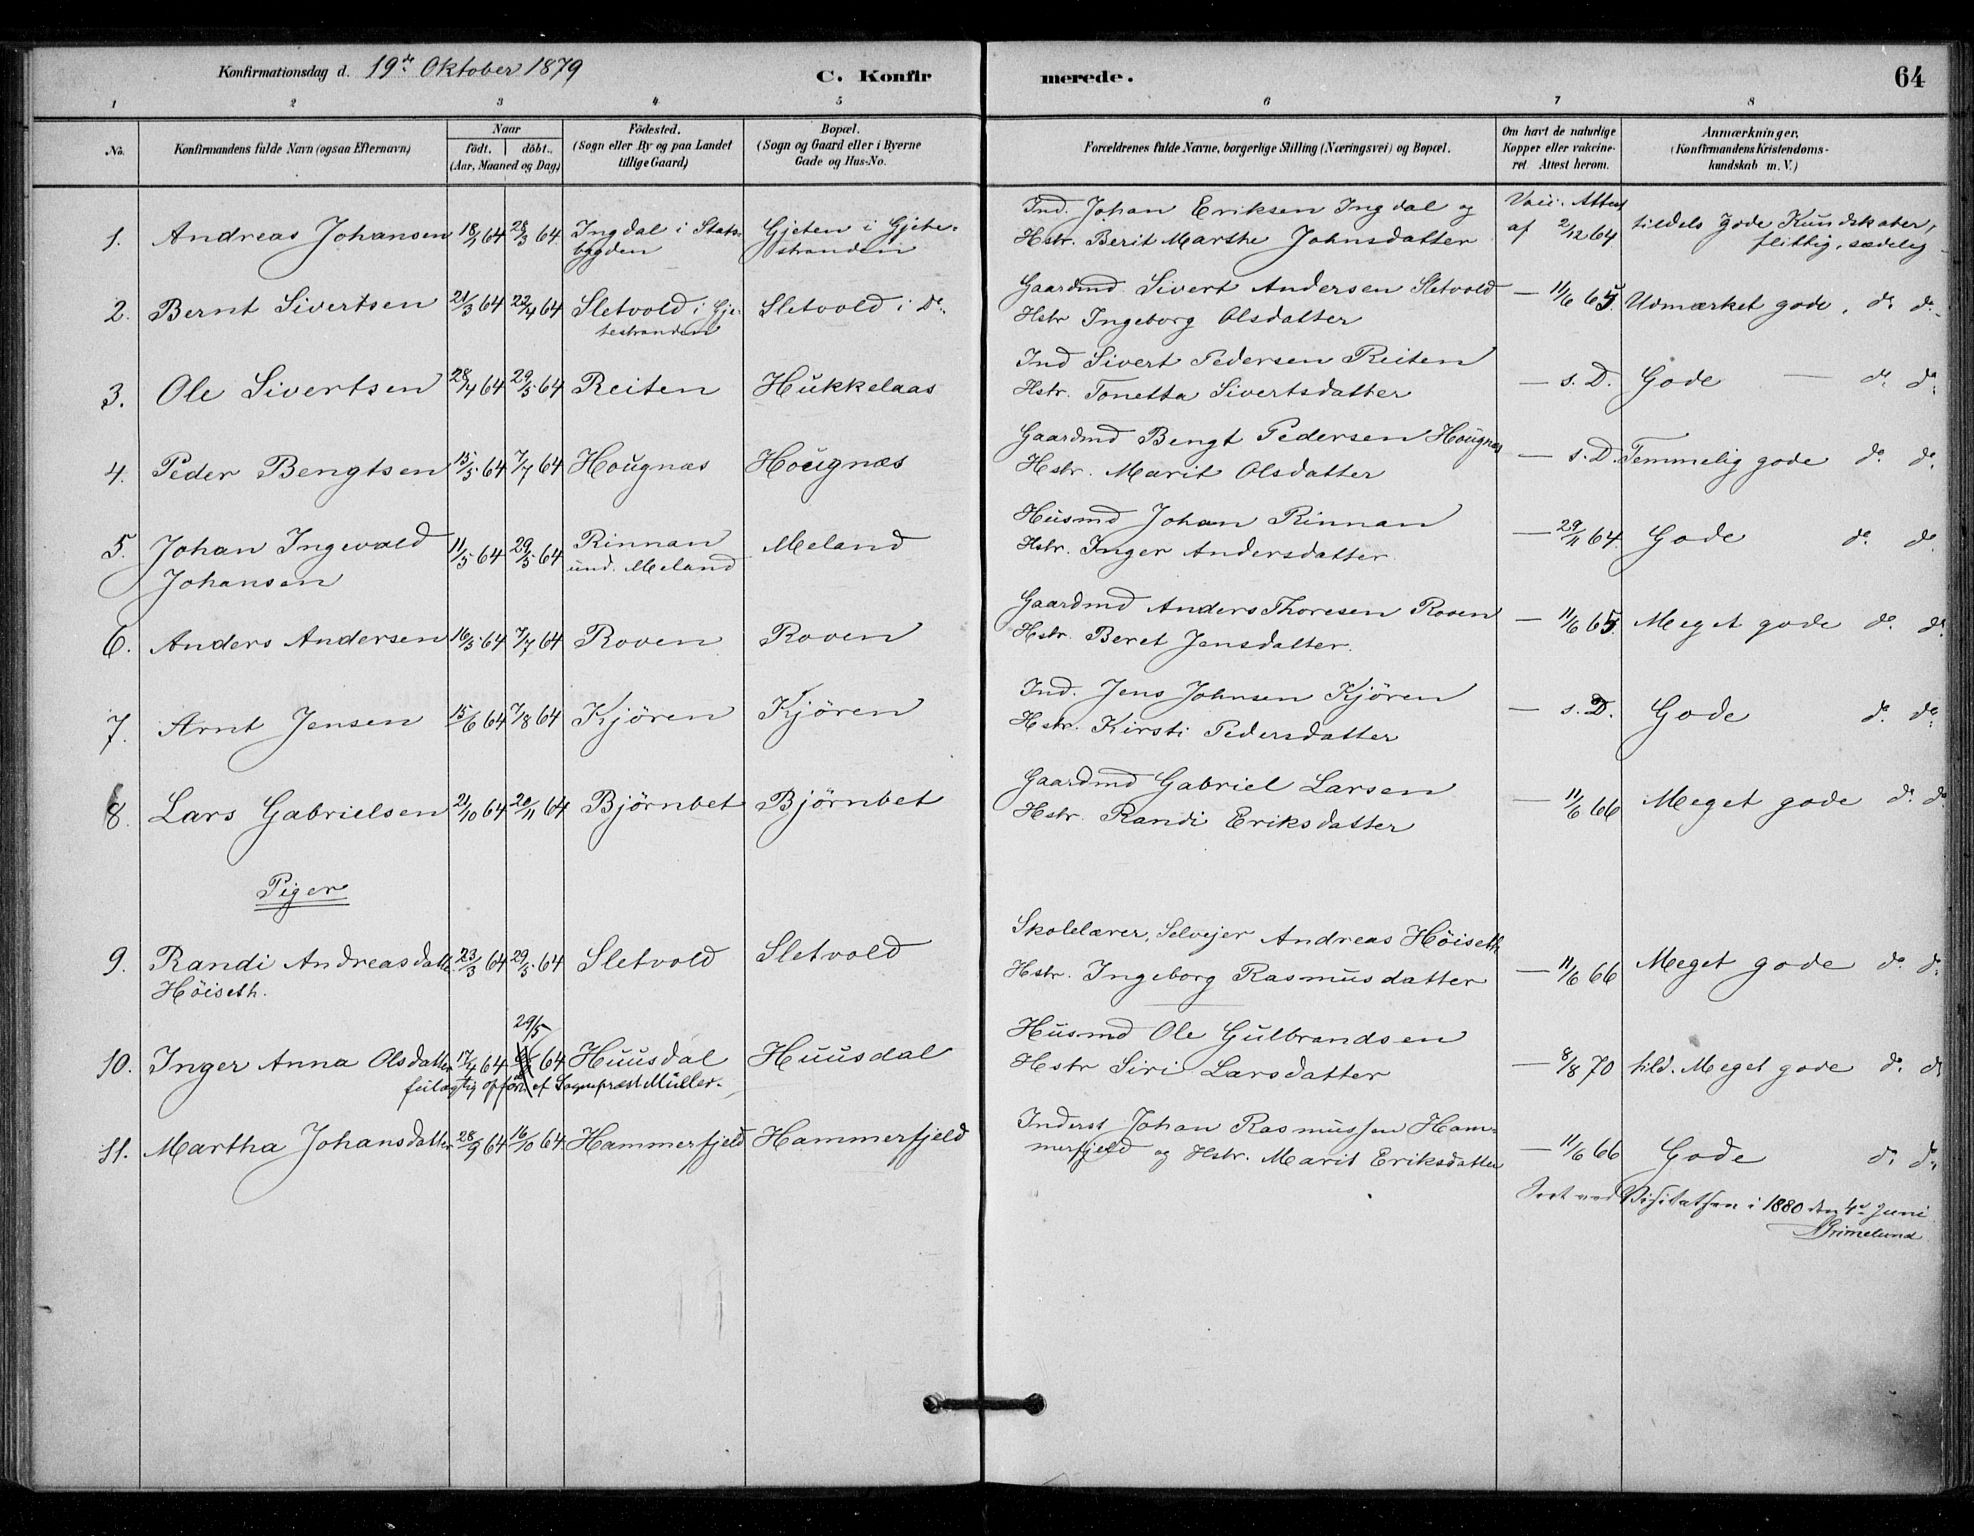 Konfirmationsdag d. 19de Oktober 1879
C. Konfirmerede.
64
1 2 3 4 5 6 7 8
No.
Konfirmandens fulde Navn (ogsaa Efternavn)
Naar
födt. döbt.
(Aar, Maaned og Dag)
Födested.
(Sogn eller By og paa Landet
tillige Gaard)
Bopæl.
(Sogn og Gaard eller i Byerne
Gade og Hus-No.
Forældrenes fulde Navne, borgerlige Stilling (Næringsvei) og Bopæl.
Om havt de naturlige
Kopper eller vakcine-
ret. Attest herom.
Anmærkninger.
(Konfirmandens Kristendoms-
kundskab m. V.)
1. Andreas Johansen 18/1 64 28/3 64. Ingdal i Stads-
bygden Gjeten i Gjete-
stranden Ind. Johan Eriksen Ingdal og
Hstr. Berit Marthe Johnsdatter Vacc. Attest
af 2/12 64 tildels gode Kundskaber,
flittig, sædelig
2. Bernt Sivertsen 21/3 64 22/4 64 Sletvold i Gje-
testranden Sletvold i Do. Gaardmd. Sivert Andersen Sletvold
Hstr Ingeborg Olsdatter — 11/6 65. Udmærket gode, do do
3. Ole Sivertsen 28/4 64 29/5 64 Reiten Hukkelaas Ind Sivert Pedersen Reiten
Hstr. Tonetta Sivertsdatter — s. D. Gode — do do
4. Peder Bengtsen 15/5 64 7/7 64 Hougnæs Hougnæs Gaardmd Bengt Pedersen Hougnæs
Hstr. Marit Olsdatter — s. D. Temmelig gode do do
5. Johan Ingevald
Johansen 11/5 64 29/5 64 Rinnan
und. Meland Meland Husmd Johan Rinnan
Hstr. Inger Andersdatter. — 29/11 64. Gode do do
6. Anders Andersen 16/5 64 7/7 64 Roven Roven Gaardmd Anders Thoresen Roven
Hstr. Beret Jensdatter. — 11/6 65. Meget gode do do
7. Arnt Jensen 15/6 64 7/8 64 Kjören Kjören Ind. Jens Johnsen Kjören
Hstr. Kirsti Pedersdatter — s. D. Gode do do
8. Lars Gabrielsen 21/10 64 20/11 64 Björnbet Björnbet Gaardmd Gabriel Larsen
Hstr. Randi Eriksdatter — 11/6 66 Meget gode do do
Piger
9. Randi Andreasdatt.
Höiseth. 23/3 64 29/5 64 Sletvold Sletvold Skolelærer, Selvejer Andreas Höiseth
Hstr. Ingeborg Rasmusdatter — 11/6 66 Meget gode do do
10. Inger Anna Olsdatter 17/4 64 29/5 64 Huusdal Huusdal Husmd Ole Gulbrandsen
Hstr Siri Larsdatter — 8/8 70 tild. Meget gode do do
feilagtig opført af Sognepræst Müller.
11. Martha Johansdatter 28/9 64 16/10 64 Hammerfjeld Hammerfjeld Inderst Johan Rasmussen Ham-
merfjeld og Hstr. Marit Eriksdatter — 11/6 66 Gode do do
Seet ved Visitatsen i 1880 den 4de Juni
Grimelund